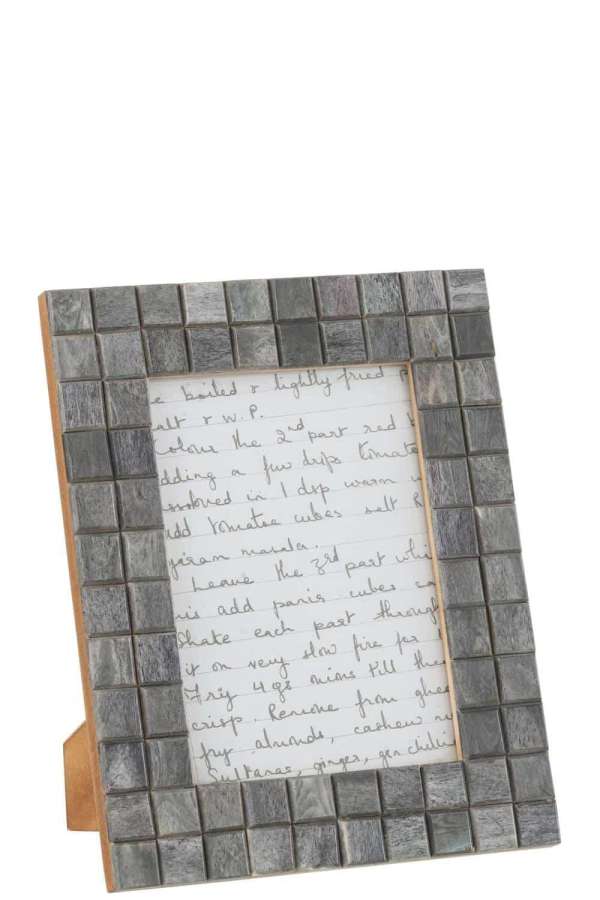 e boiled & lightly fried p
alt & W.P.
Colour the 2nd part red
dding a few drops tomato
ssolved in 1 dsp warm w
dd tomatoe cubes salt
garam masala.
Leave the 3rd part whi
is add paris cubes sa
Shake each part through
it on very slow fire for
Fry 4 gs onions till the
crisp. Remove from ghee
fry almonds, cashew nu
Sultanas, ginger,